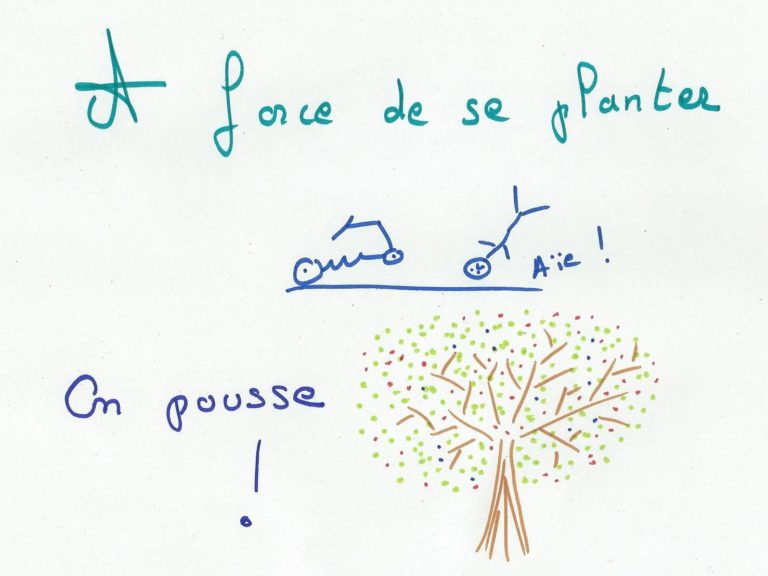 A force de se planter
Aïe !
On pousse
!